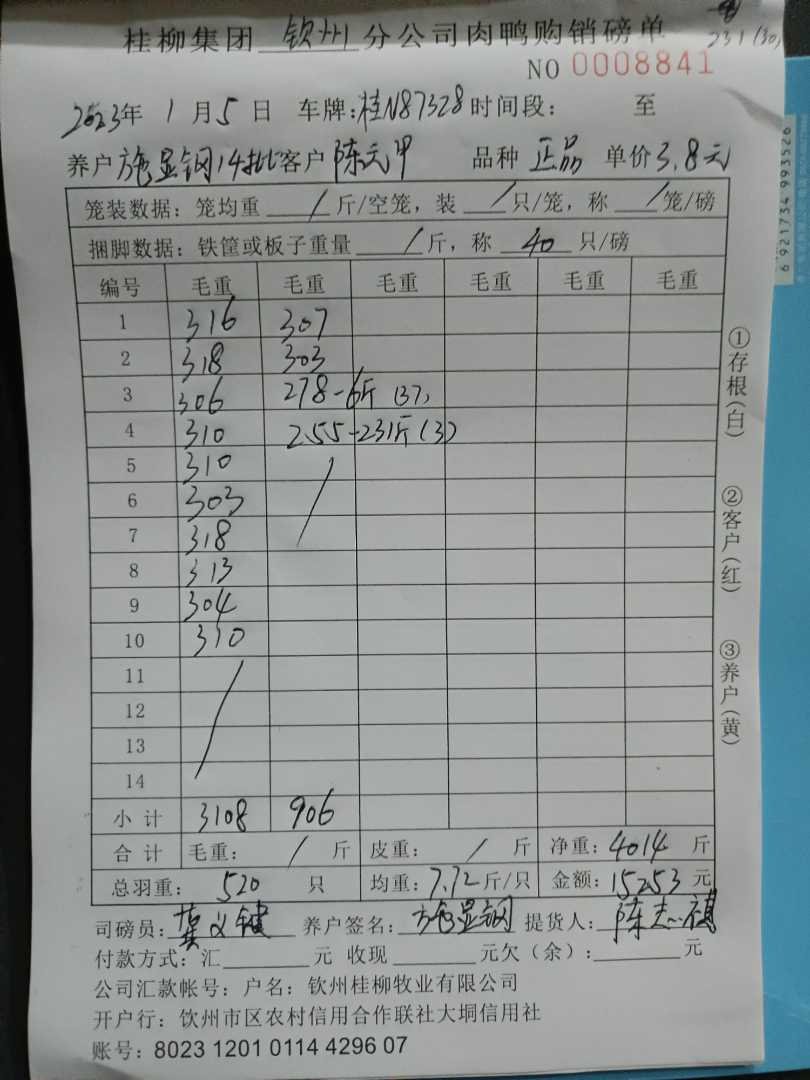 231(30)
桂柳集团 钦州 分公司肉鸭购销磅单
NO 0008841
2023年 1月5日 车牌:桂N87328 时间段: 至
养户 施显钢14批 客户 陈元甲 品种 正品 单价3.8元
笼装数据: 笼均重 / 斤/空笼, 装 / 只/笼, 称 / 笼/磅
捆脚数据: 铁筐或板子重量 / 斤, 称 40 只/磅
编号 毛重 毛重 毛重 毛重 毛重 毛重
1 316 307
2 318 303
3 306 278-6斤(37)
4 310 255-231斤(3)
5 310 /
6 303
7 318
8 313
9 304
10 310
11 /
12
13
14
小计 3108 906
合计 毛重: / 斤 皮重: / 斤 净重: 4014 斤
总羽重: 520 只 均重: 7.72斤/只 金额: 15253元
司磅员: 养户签名: 施显钢 提货人: 陈志祺
付款方式: 汇 元 收现 元欠(余): 元
公司汇款帐号: 户名: 钦州桂柳牧业有限公司
开户行: 钦州市区农村信用合作联社大垌信用社
账号: 8023 1201 0114 4296 07
①存根(白)
②客户(红)
③养户(黄)
6 921734 993526